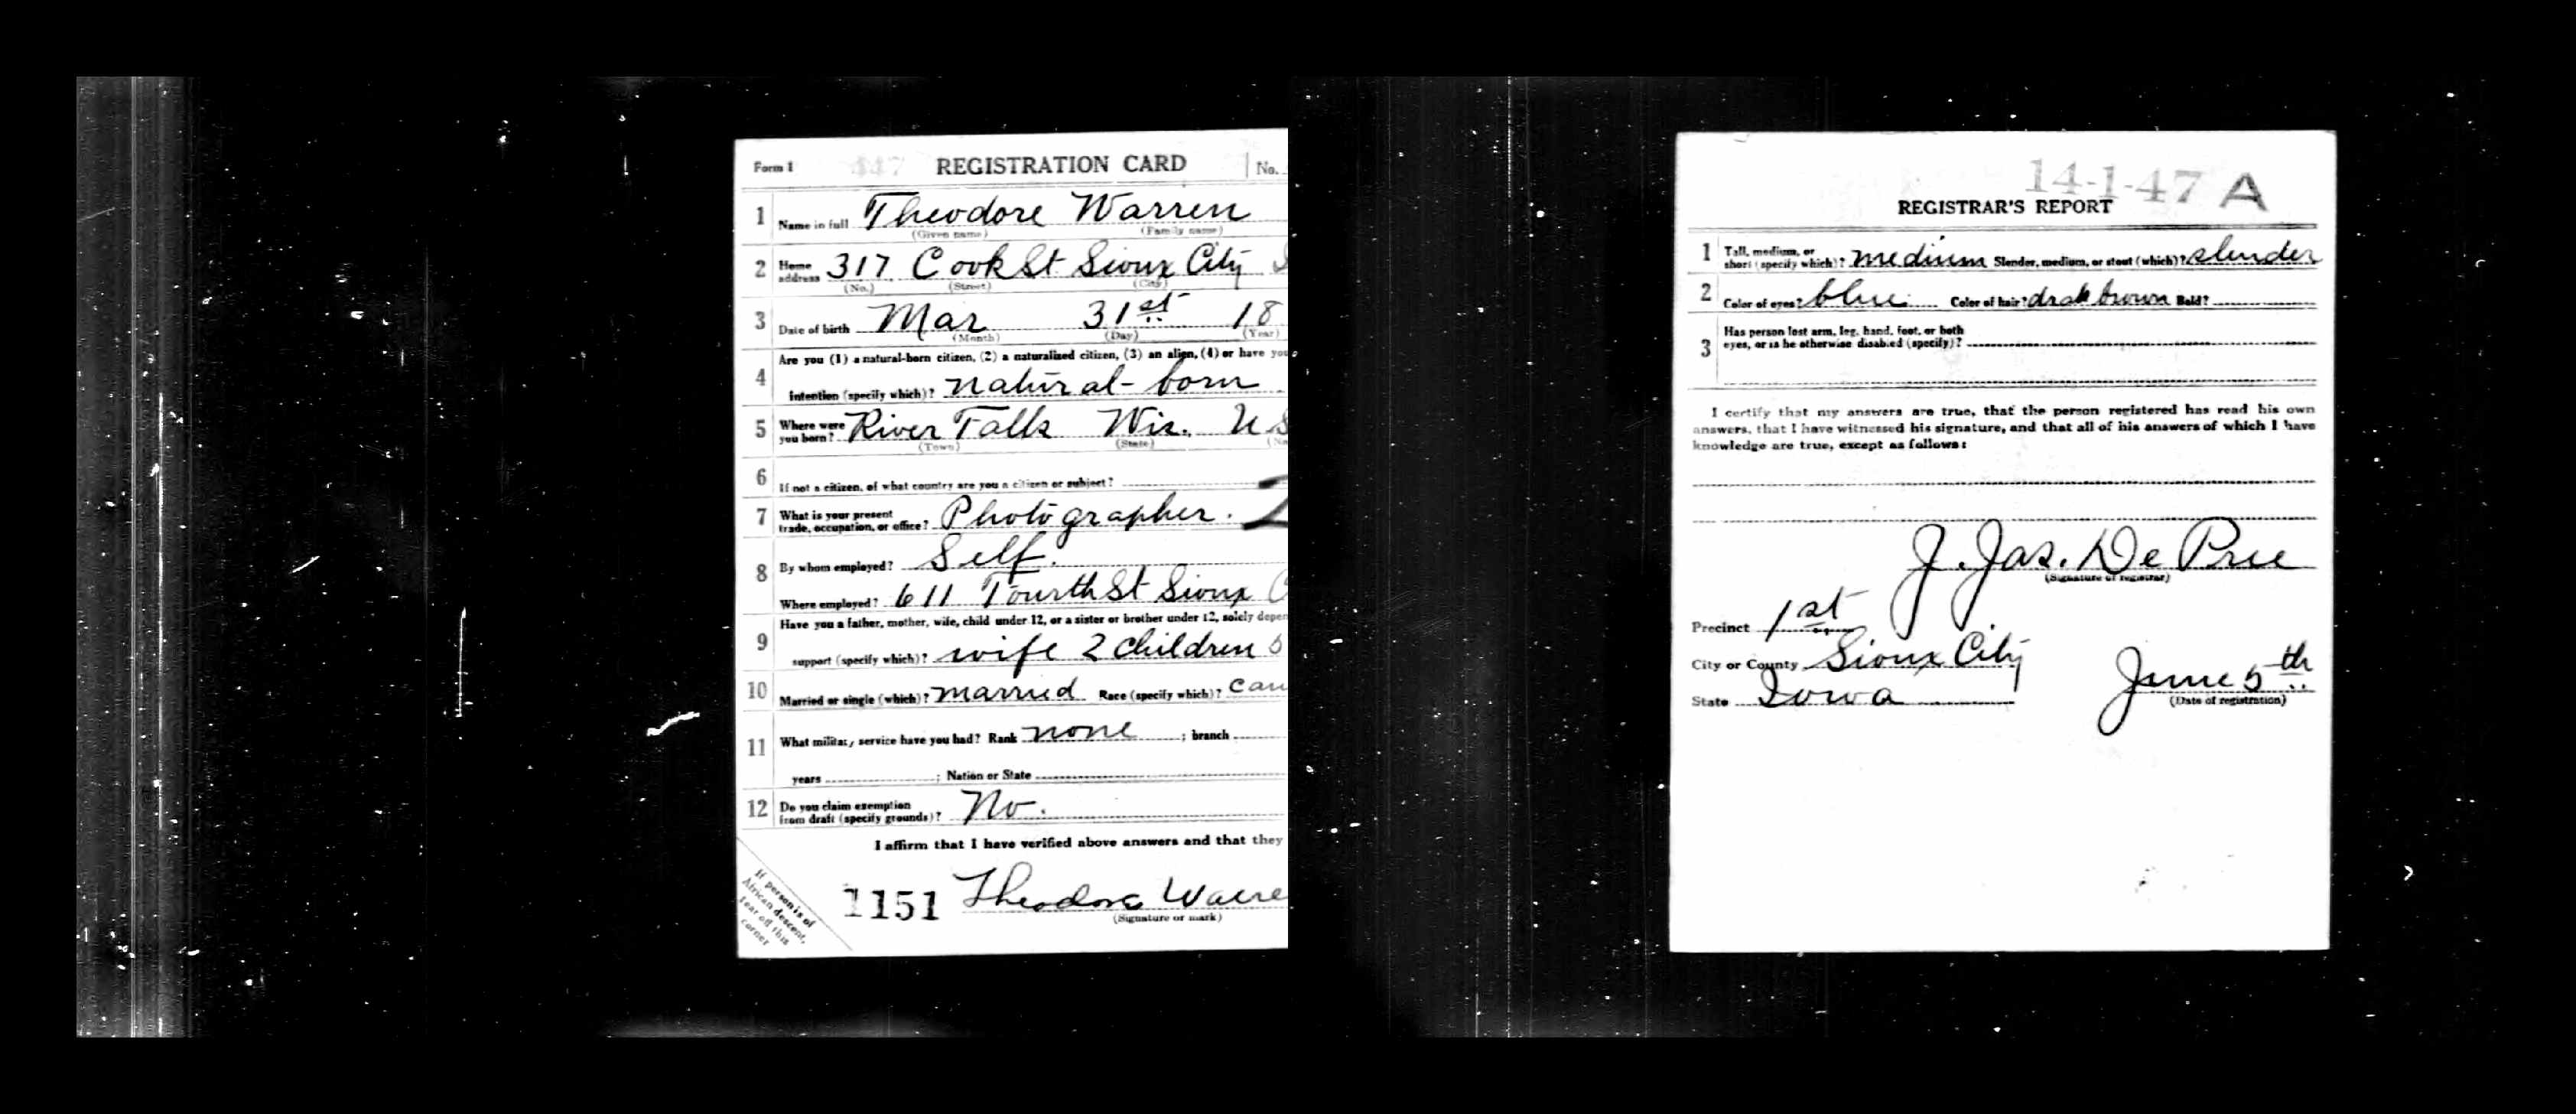 Form 1 447 REGISTRATION CARD No.
1 Name in full Theodore Warren
(Given name) (Family name)
2 Home address 317 Cook St Sioux City
(No.) (Street) (City)
3 Date of birth Mar 31st 18
(Month) (Day) (Year)
Are you (1) a natural-born citizen, (2) a naturalized citizen, (3) an alien, (4) or have you
4 intention (specify which)? natural-born
5 Where were you born? River Falls Wis. U S
(Town) (State)
6 If not a citizen, of what country are you a citizen or subject?
7 What is your present trade, occupation, or office? Photographer.
8 By whom employed? Self.
Where employed? 611 Fourth St Sioux C
9 Have you a father, mother, wife, child under 12, or a sister or brother under 12, solely depen
support (specify which)? wife 2 children
10 Married or single (which)? married Race (specify which)? Cau
11 What military service have you had? Rank none ; branch
years ; Nation or State
12 Do you claim exemption from draft (specify grounds)? No.
I affirm that I have verified above answers and that they
If person is of African descent, tear off this corner
1151 Theodore Warre
(Signature or mark)
14-1-47 A
REGISTRAR'S REPORT
1 Tall, medium, or short (specify which)? medium Slender, medium, or stout (which)? slender
2 Color of eyes? blue Color of hair? drak brown Bald?
3 Has person lost arm, leg, hand, foot, or both eyes, or is he otherwise disabled (specify)?
I certify that my answers are true, that the person registered has read his own
answers, that I have witnessed his signature, and that all of his answers of which I have
knowledge are true, except as follows:
J. Jas. De Pree
(Signature of registrar)
Precinct 1st
City or County Sioux City
State Iowa June 5th
(Date of registration)